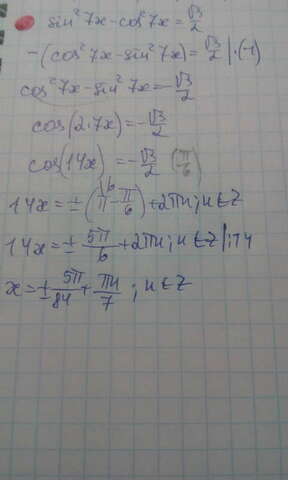 sin²7x-cos²7x=√3/2
-(cos²7x-sin²7x)=√3/2 |·(-1)
cos²7x-sin²7x=-√3/2
cos(2·7x)=-√3/2
cos(14x)=-√3/2 (π/6)
14x=±(π-π/6)+2πn; n∈Z
14x=±5π/6+2πn; n∈Z |:14
x=±5π/84+πn/7; n∈Z